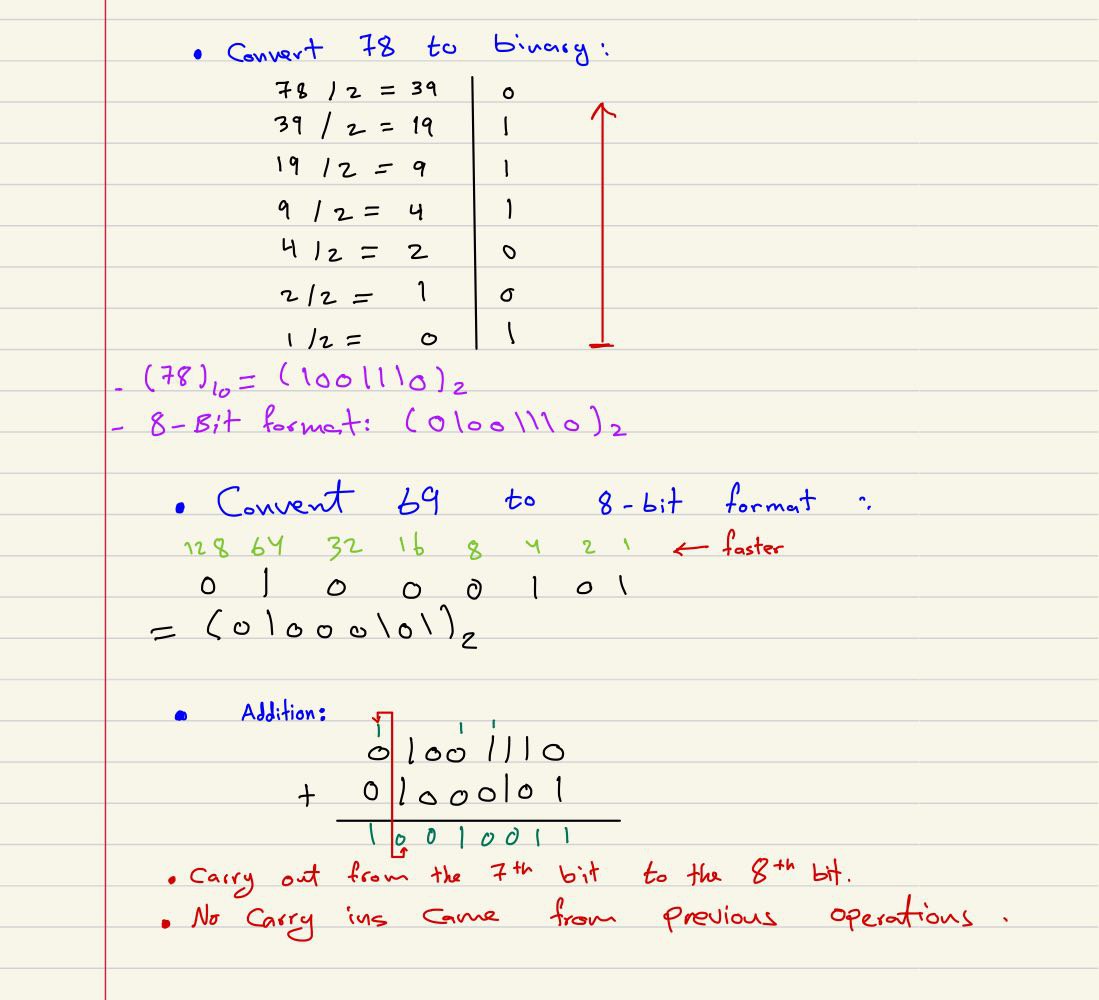 • Convert 78 to binary:
78 / 2 = 39 | 0
39 / 2 = 19 | 1
19 / 2 = 9 | 1
9 / 2 = 4 | 1
4 / 2 = 2 | 0
2 / 2 = 1 | 0
1 / 2 = 0 | 1
- (78)₁₀ = (1001110)₂
- 8-Bit format: (01001110)₂
• Convent 69 to 8-bit format :
128 64 32 16 8 4 2 1 ← faster
0 1 0 0 0 1 0 1
= (01000101)₂
• Addition:
1 1 1
01001110
+ 01000101
10010011
• Carry out from the 7th bit to the 8th bit.
• No Carry ins Came from previous operations .